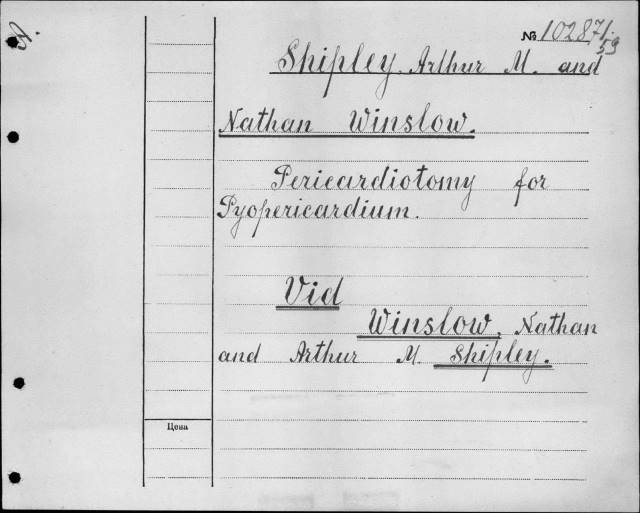 A.
№ 102871/59
Shipley, Arthur M. and
Nathan Winslow.
Pericardiotomy for
Pyopericardium.
Vid
Winslow, Nathan
and Arthur M. Shipley.
Цена